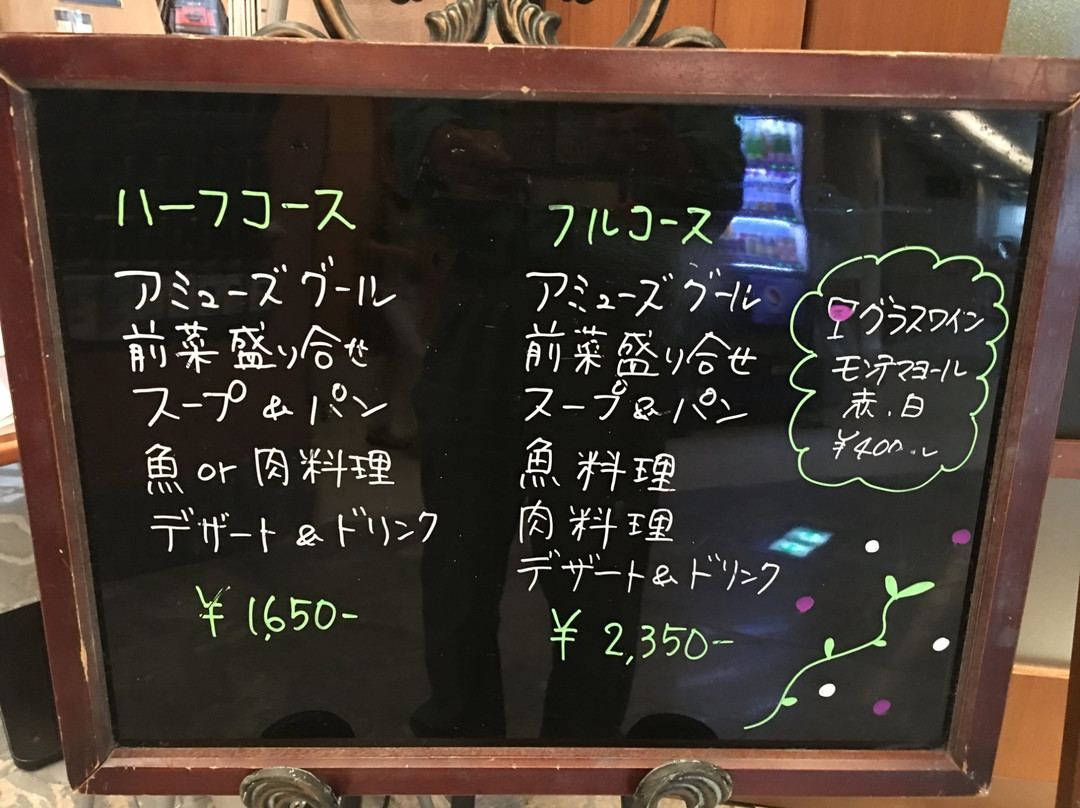 ハーフコース
アミューズグール
前菜盛り合せ
スープ&パン
魚or肉料理
デザート&ドリンク
¥1,650-
フルコース
アミューズグール
前菜盛り合せ
スープ&パン
魚料理
肉料理
デザート&ドリンク
¥2,350-
グラスワイン
モンテマヨール
赤、白
¥400